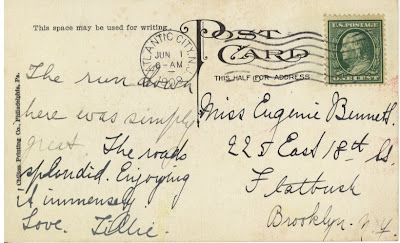 This space may be used for writing.
POST CARD
THIS HALF FOR ADDRESS
ATLANTIC CITY, N.J.
JUN 1
9-AM
1909
U.S. POSTAGE
ONE CENT
Chilton Printing Co., Philadelphia, Pa.
The run down
here was simply
great. The roads
splendid. Enjoying
it immensely
Love. Tillie.
Miss Eugenie Bennett.
225 East 18th St.
Flatbush
Brooklyn. N.Y.